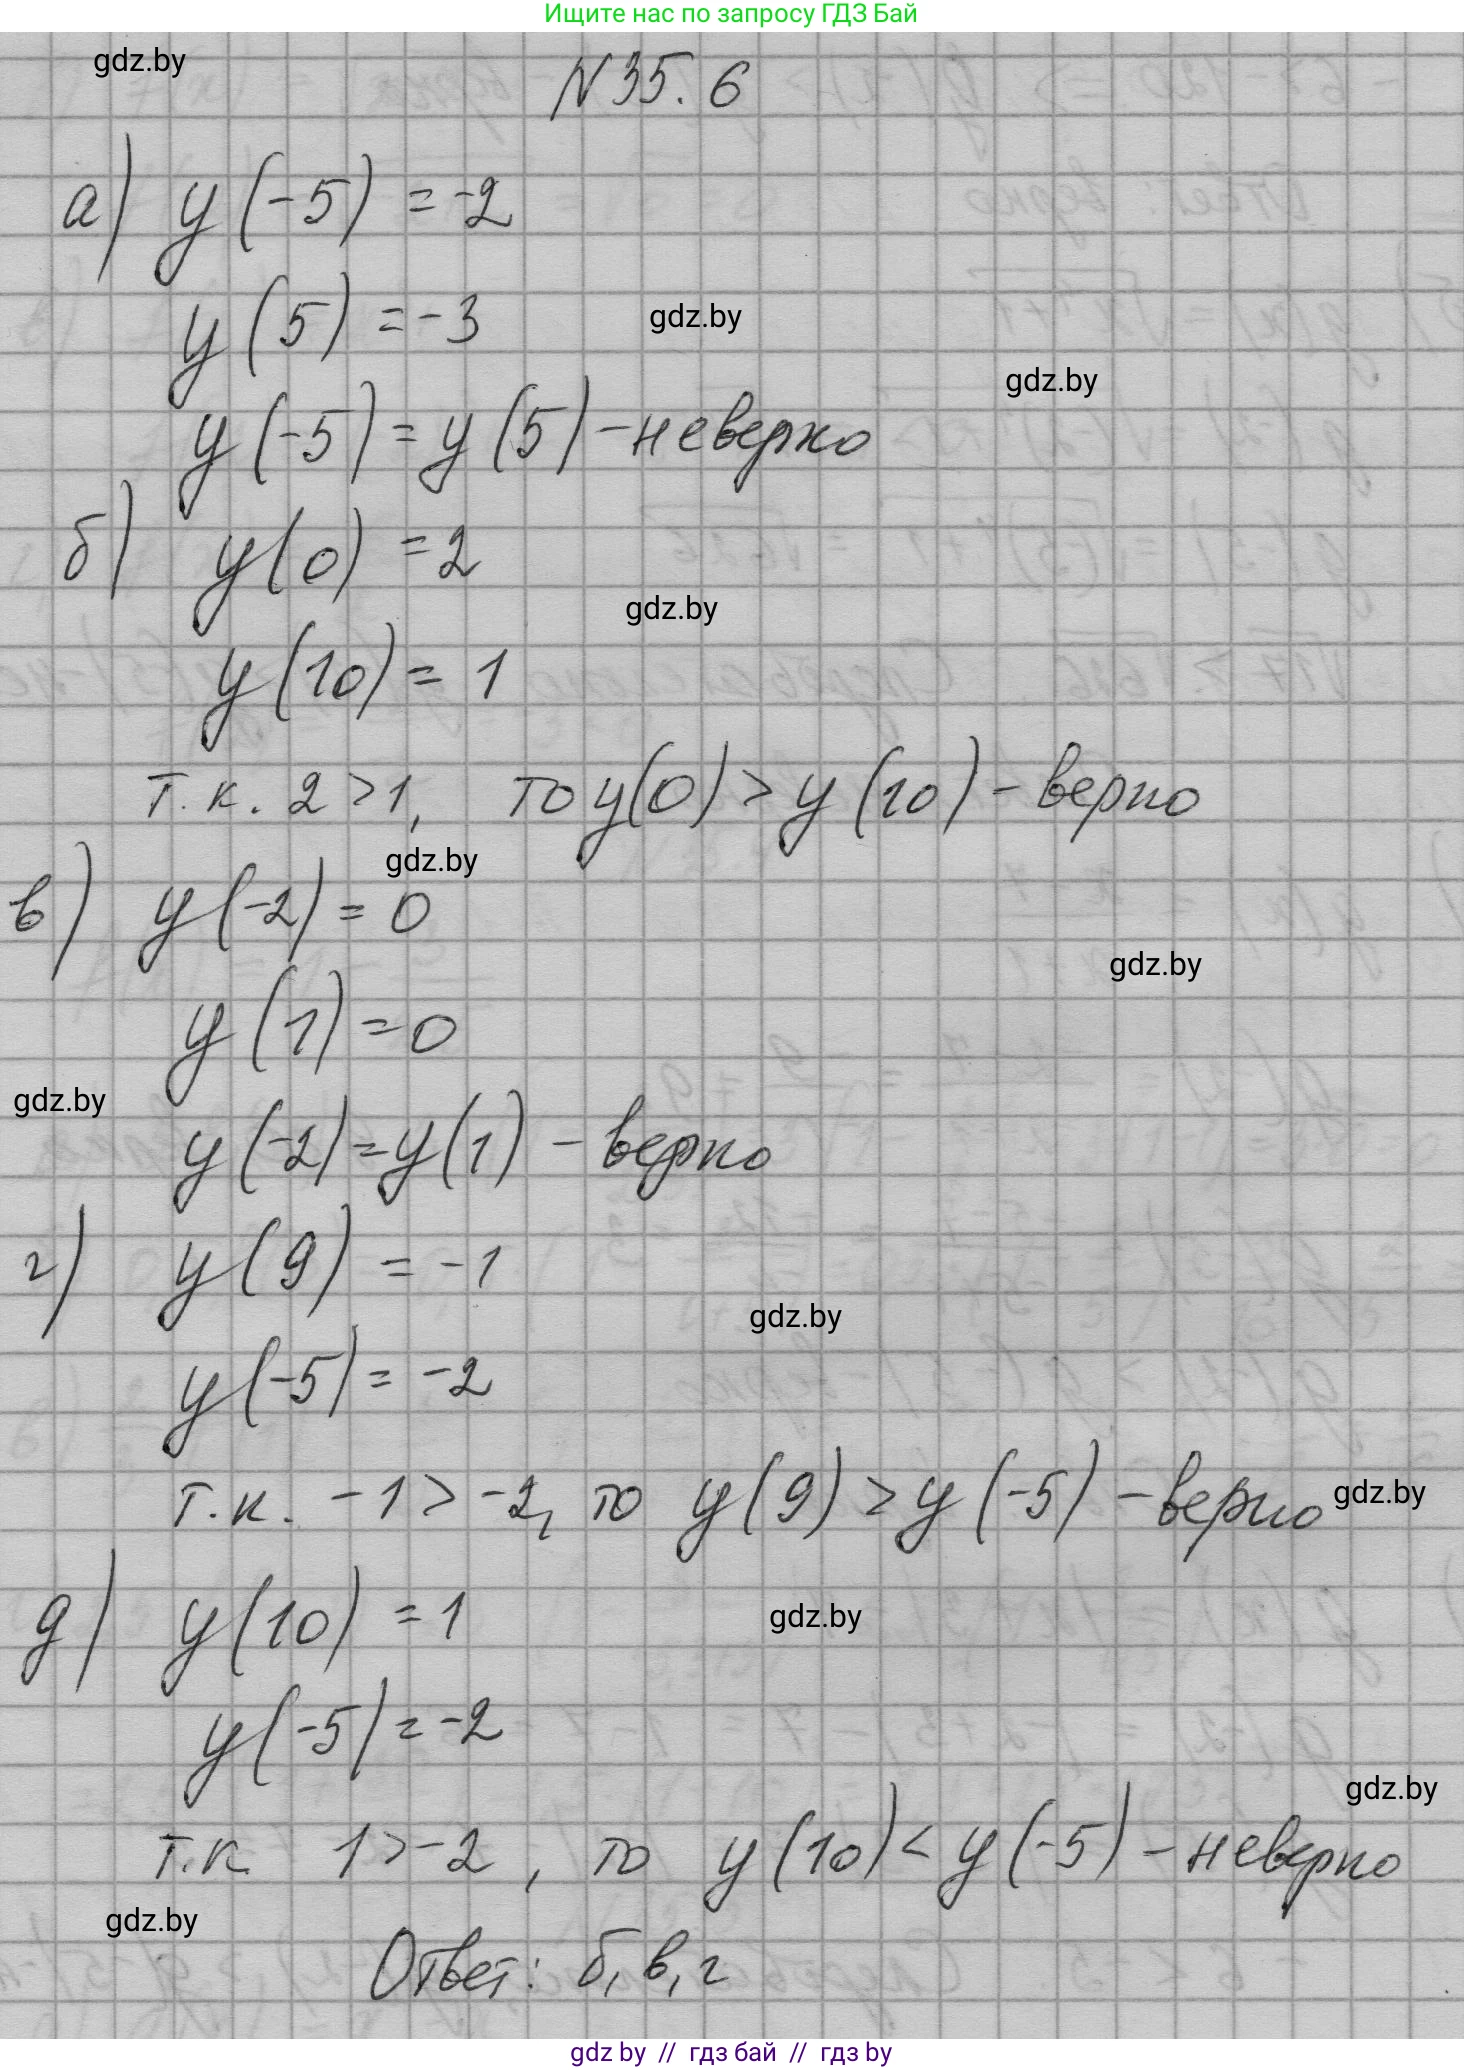 Ищите нас по запросу ГДЗ Бай
gdz.by
N 35. 6
а) y(-5) = -2
y(5) = -3
gdz.by
gdz.by
y(-5) = y(5) - неверно
б) y(0) = 2
gdz.by
y(10) = 1
т.к. 2 > 1, то y(0) > y(10) - верно
gdz.by
в) y(-2) = 0
gdz.by
y(1) = 0
gdz.by
y(-2) = y(1) - верно
г) y(9) = -1
gdz.by
y(-5) = -2
т.к. -1 > -2, то y(9) > y(-5) - верно
gdz.by
д) y(10) = 1
gdz.by
y(-5) = -2
gdz.by
т.к. 1 > -2, то y(10) < y(-5) - неверно
gdz.by
Ответ: б, в, г
gdz by // гдз бай // гдз by